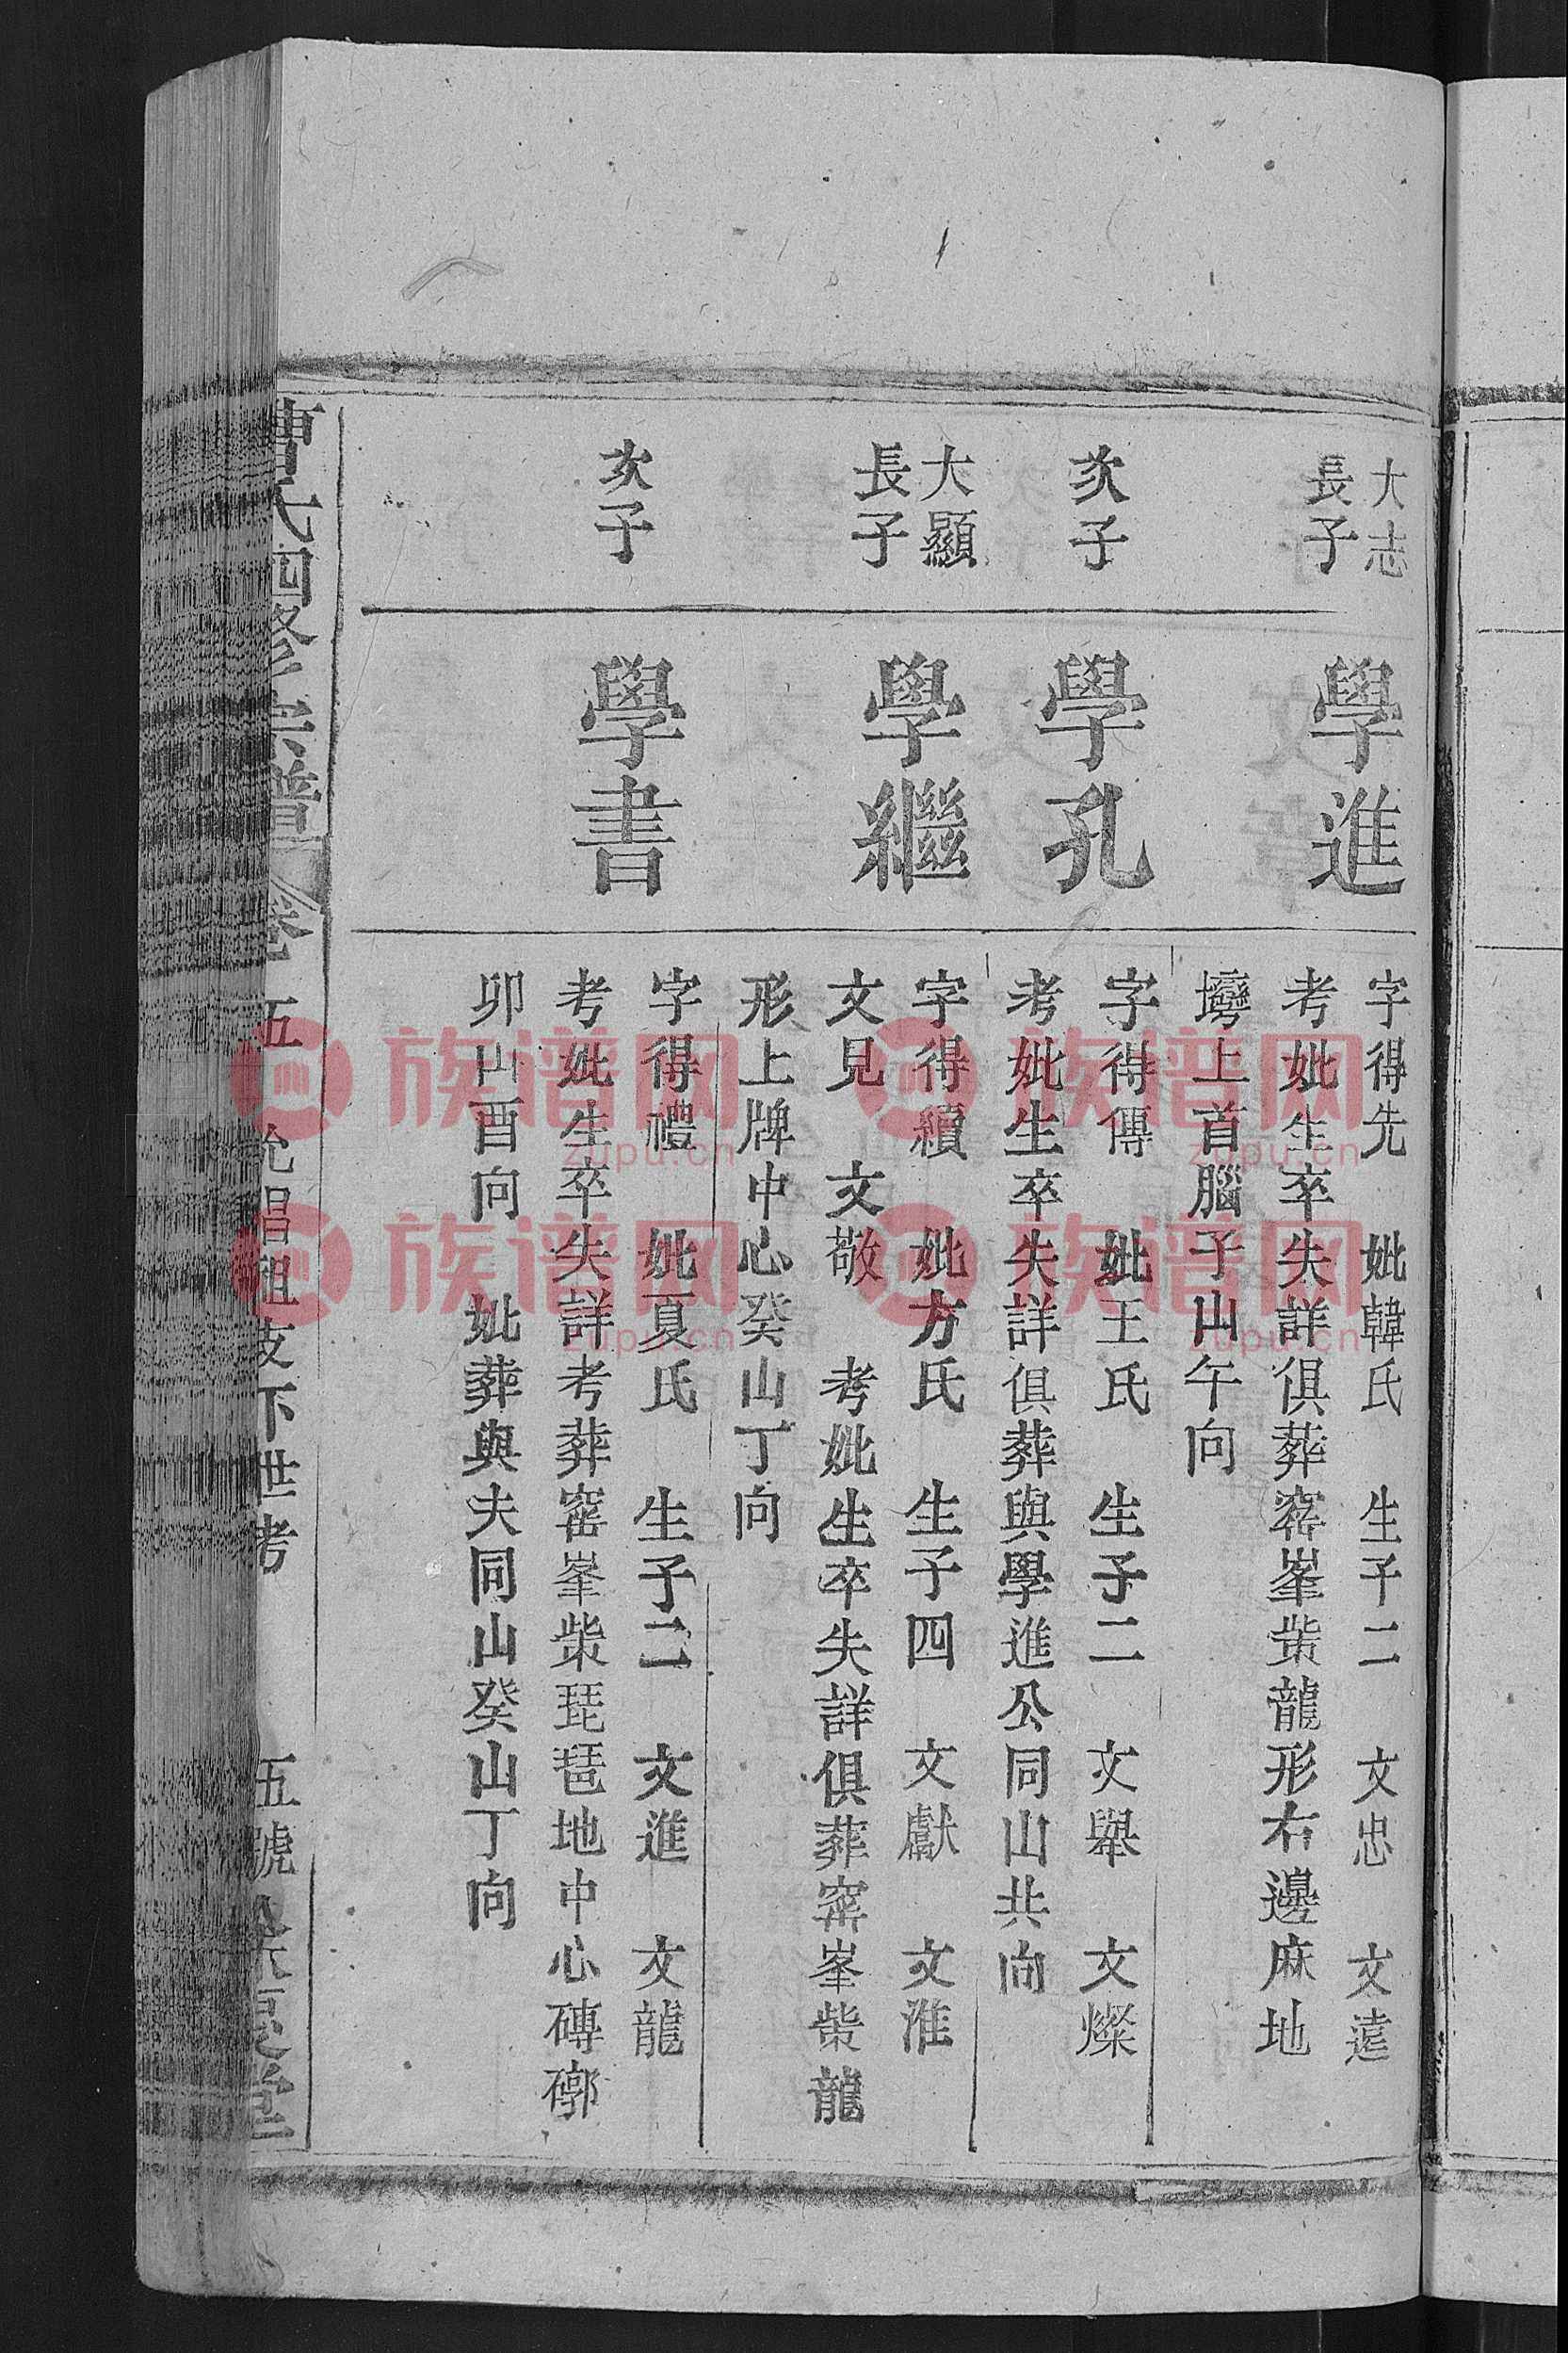 大志
長子
學進
字得先 妣韓氏 生子二 文忠 文遠
考妣生卒失詳俱葬窰峯柴龍形右邊麻地
塆上首腦子山午向
次子
學孔
字得傳 妣王氏 生子二 文舉 文燦
考妣生卒失詳俱葬與學進公同山共向
大顯
長子
學繼
字得續 妣方氏 生子四 文獻 文淮
文見 文敬 考妣生卒失詳俱葬窰峯柴龍
形上牌中心癸山丁向
次子
學書
字得禮 妣夏氏 生子二 文進 文龍
考妣生卒失詳考葬窰峯柴琵琶地中心磚廓
卯山酉向 妣葬與夫同山癸山丁向
曹氏四修宗譜 卷五 允昌祖支下世考 五號
族谱网
zupu.cn
族谱网
zupu.cn
族谱网
zupu.cn
族谱网
zupu.cn